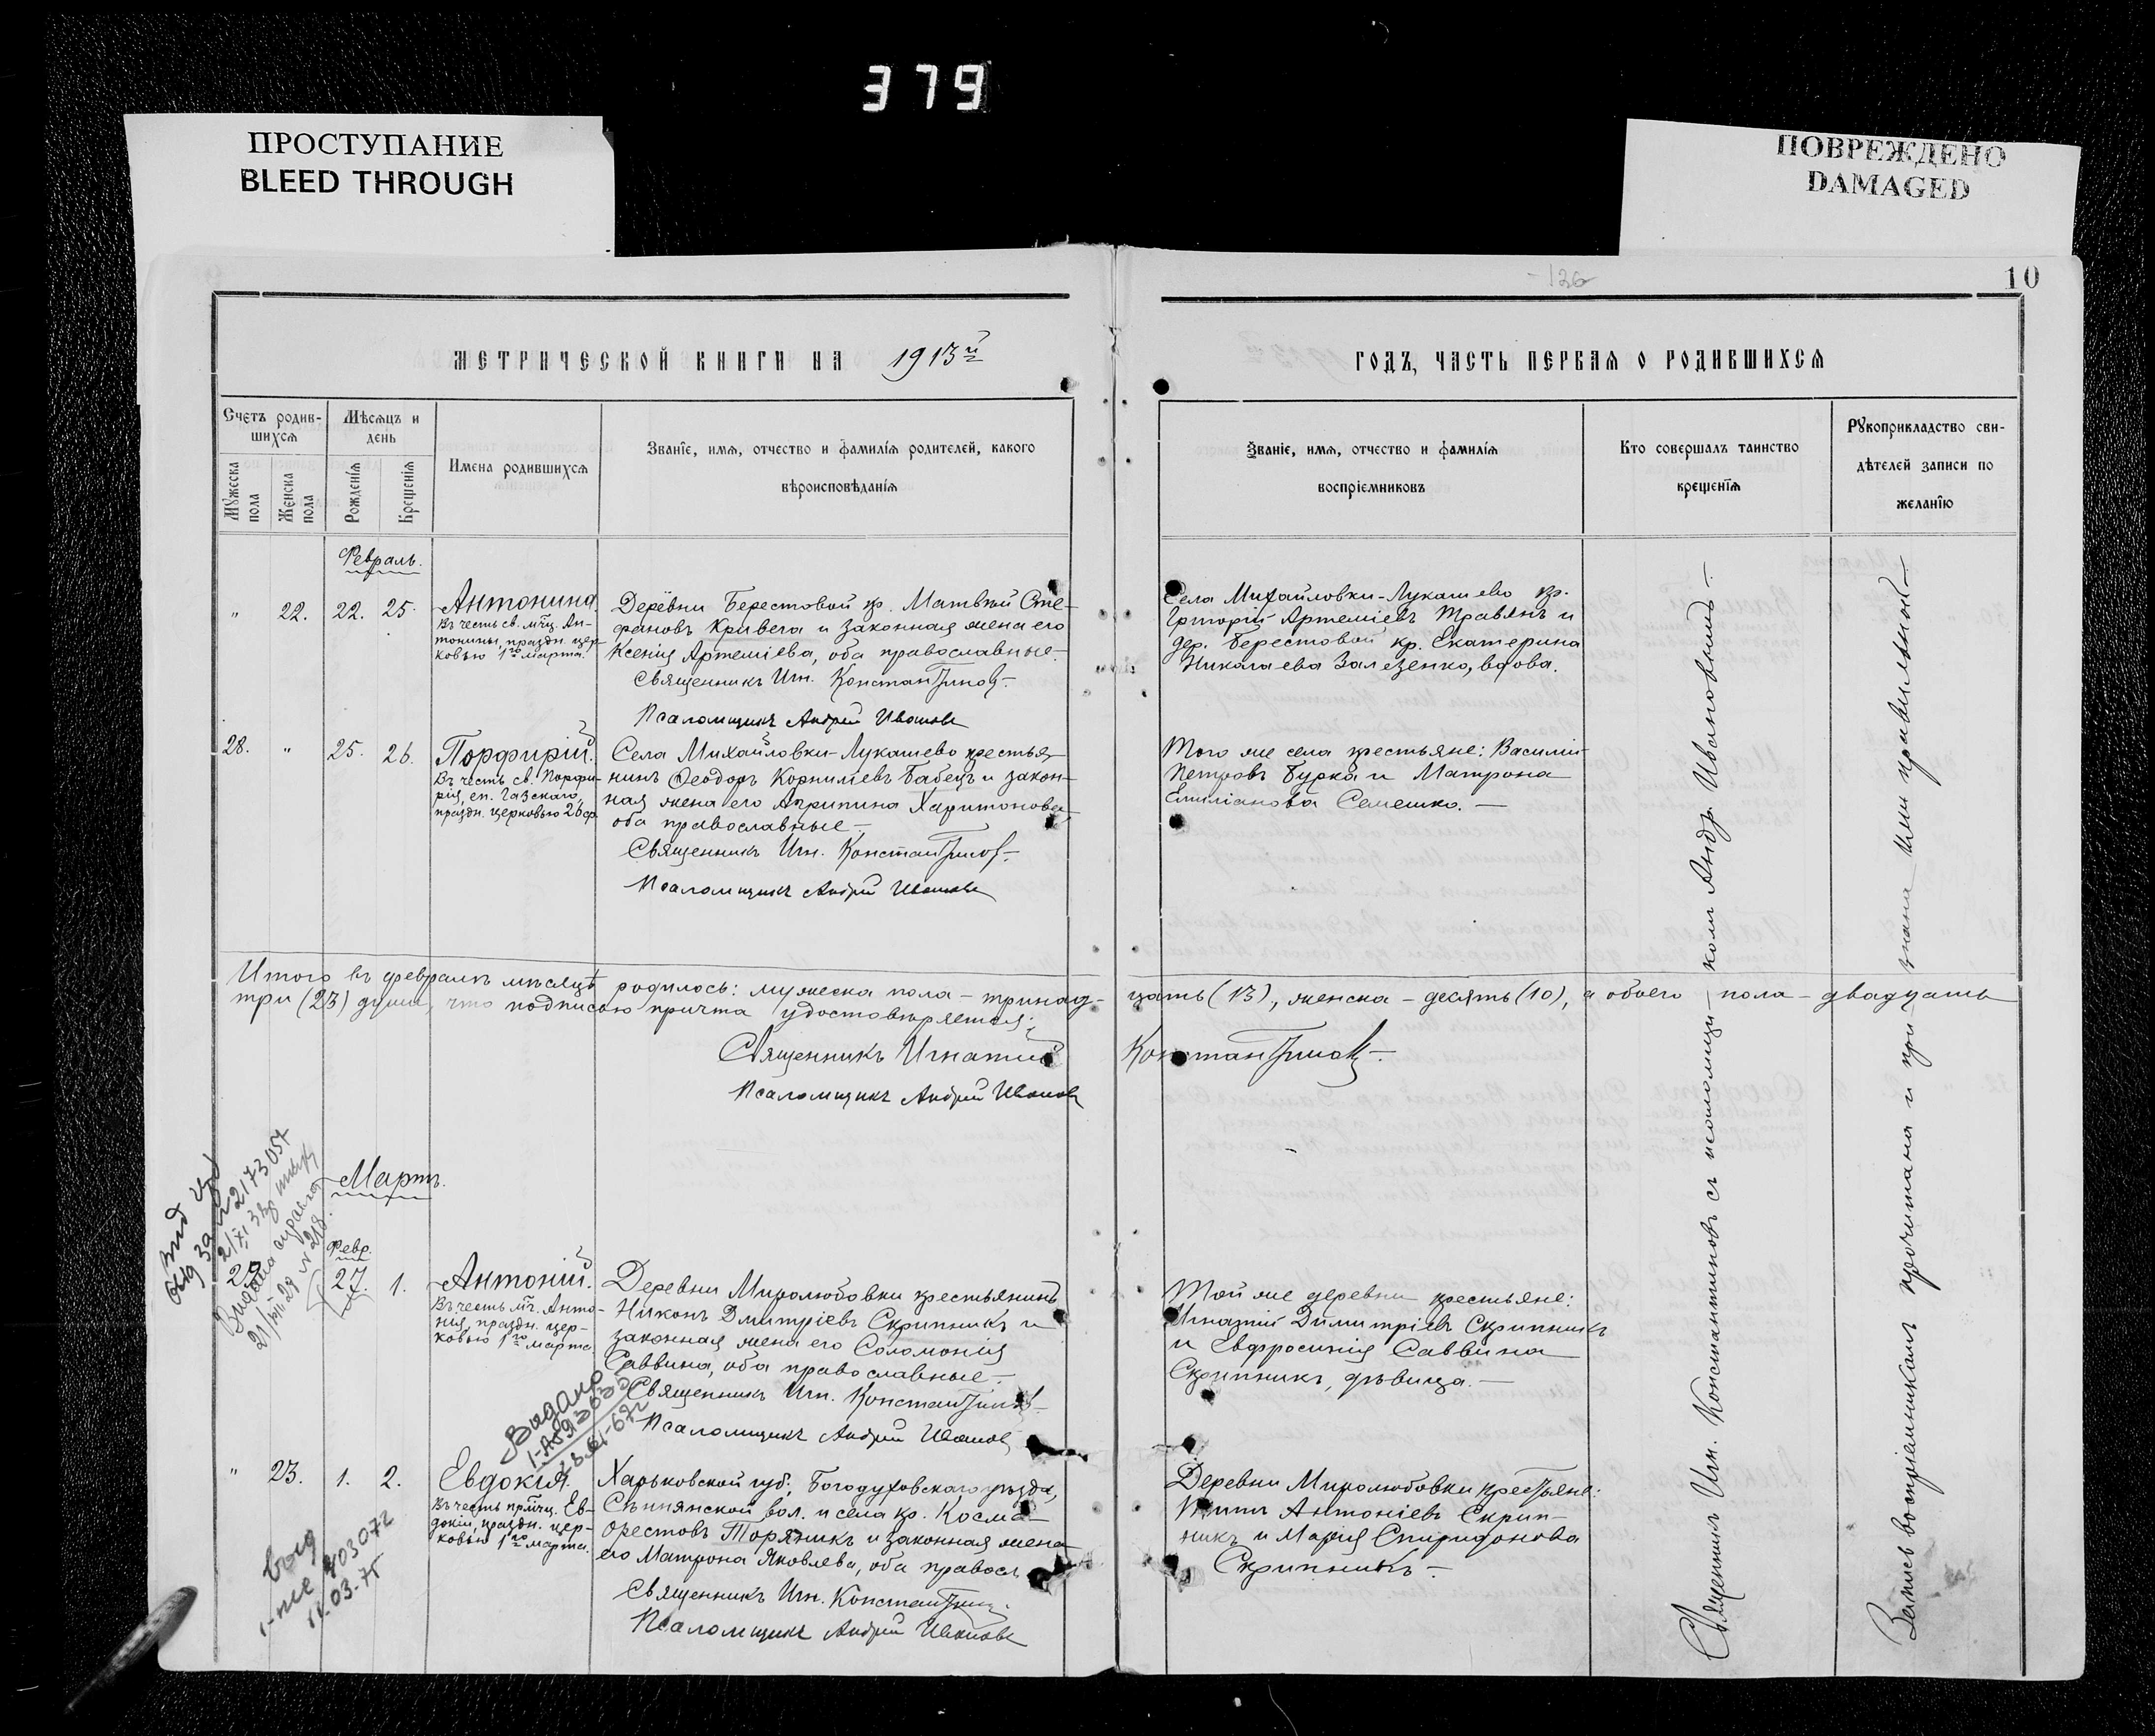 379
ПРОСТУПАНИЕ
BLEED THROUGH
ПОВРЕЖДЕНО
DAMAGED
126
10
МЕТРИЧЕСКОЙ КНИГИ НА 1913й
ГОДЪ, ЧАСТЬ ПЕРВАЯ О РОДИВШИХСЯ
Счетъ родив-
шихся
Мужеска
пола
Женска
пола
Мѣсяцъ и
день
Рожденія
Крещенія
Имена родившихся
Званіе, имя, отчество и фамилія родителей, какого
вѣроисповѣданія
Званіе, имя, отчество и фамилія
воспріемниковъ
Кто совершалъ таинство
крещенія
Рукоприкладство сви-
дѣтелей записи по
желанію
Февраль.
" 22. 22. 25.
Антонина.
Въ честь св. мц. Ан-
тонины, праздн. цер-
ковью 1го марта.
Деревни Берестовой кр. Матвѣй Сте-
фановъ Кривега и законная жена его
Ксенія Артеміева, оба православные.
Священникъ Игн. Константиновъ.
Псаломщикъ Андрей Ивановъ
Села Михайловки-Лукашево кр.
Григорій Артеміевъ Травянъ и
дер. Берестовой кр. Екатерина
Николаева Залезенко, вдова.
28. " 25. 26.
Порфирій.
Въ честь св. Порфи-
рія, еп. Газскаго,
праздн. церковью 26 ф.
Села Михайловки-Лукашево крестья-
нинъ Ѳеодоръ Корниліевъ Бабецъ и закон-
ная жена его Агрипина Харитонова,
оба православные.
Священникъ Игн. Константиновъ.
Псаломщикъ Андрей Ивановъ
Того же села крестьяне: Василій
Петровъ Бурка и Матрона
Емиліанова Семешко.
Итого въ февралѣ мѣсяцѣ родилось: мужеска пола – тринад-
цать (13), женска – десять (10), а обоего пола – двадцать
три (23) души, что подписью причта удостовѣряется:
Священникъ Игнатій Константиновъ.
Псаломщикъ Андрей Ивановъ
Мартъ.
Февр.
29 27. 1.
Антоній.
Въ честь мч. Анто-
нія, праздн. цер-
ковью 1го марта
Деревни Миролюбовки крестьянинъ
Никонъ Дмитріевъ Скрипникъ и
законная жена его Соломонія
Саввина, оба православные.
Священникъ Игн. Константиновъ.
Псаломщикъ Андрей Ивановъ
Той же деревни крестьяне:
Игнатій Димитріевъ Скрипникъ
и Евфросинія Саввина
Скрипникъ, дѣвица.
Выдано
" 23. 1. 2.
Евдокія.
Въ честь прмчц. Ев-
докіи, праздн. цер-
ковью 1го марта.
Харьковской губ., Богодуховскаго уѣзда,
Сѣннянской вол. и села кр. Косма
Орестовъ Торяникъ и законная жена
его Матрона Яковлева, оба правосл.
Священникъ Игн. Константиновъ.
Псаломщикъ Андрей Ивановъ
Деревни Миролюбовки крестьяне:
Антоніевъ Скрип-
никъ и Марія Спиридонова
Скрипникъ.
403072
11-03-75
Священникъ Игн. Константиновъ съ псаломщикомъ Андр. Ивановымъ
Запись воспріемникамъ прочитана и признана ими правильной